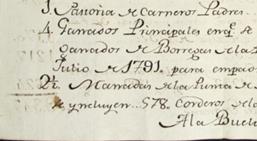 1. Panoria de Carneros Padres
4. Ganados Principales enq.e s
ganados de Borregas de la
Julio de 1791. para empao
21. Manadas de la Punta de
se yncluyen 578. Corderos de la
A la Buelt